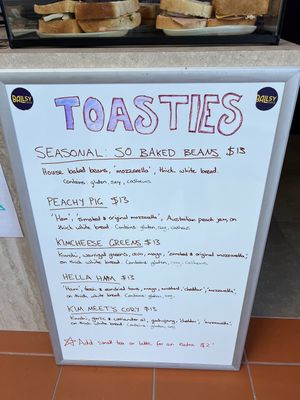 BAILEY
BAILEY
TOASTIES
SEASONAL: SO BAKED BEANS $13
House baked beans, 'mozzarella', thick white bread.
Contains: gluten, soy, cashews
PEACHY PIG $13
'Ham', 'smoked & original mozzarella', Australian peach jam, on
thick white bread Contains: gluten, soy, cashews
KIMCHEESE GREENS $13
Kimchi, warrigal greens, mayo, 'smoked & original mozzarella'
on thick white bread. Contains: gluten, soy, cashews
HELLA HAM $13
'Ham', fresh & sundried toms, mayo, mustard, 'cheddar', 'mozzarella'
thick white bread. Contains: gluten, soy.
KIM MEETS CORY $13
Kimchi, garlic & coriander oil, gochujang, 'cheddar', 'mozzarella',
on thick white bread. Contains: gluten, soy.
Add small tea or latte for an extra $2!